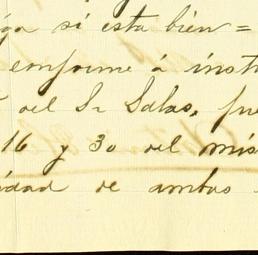 iga si esta bien =
conforme á inst
del Sr Salas, fue
16 y 30 del mis
idad de ambas